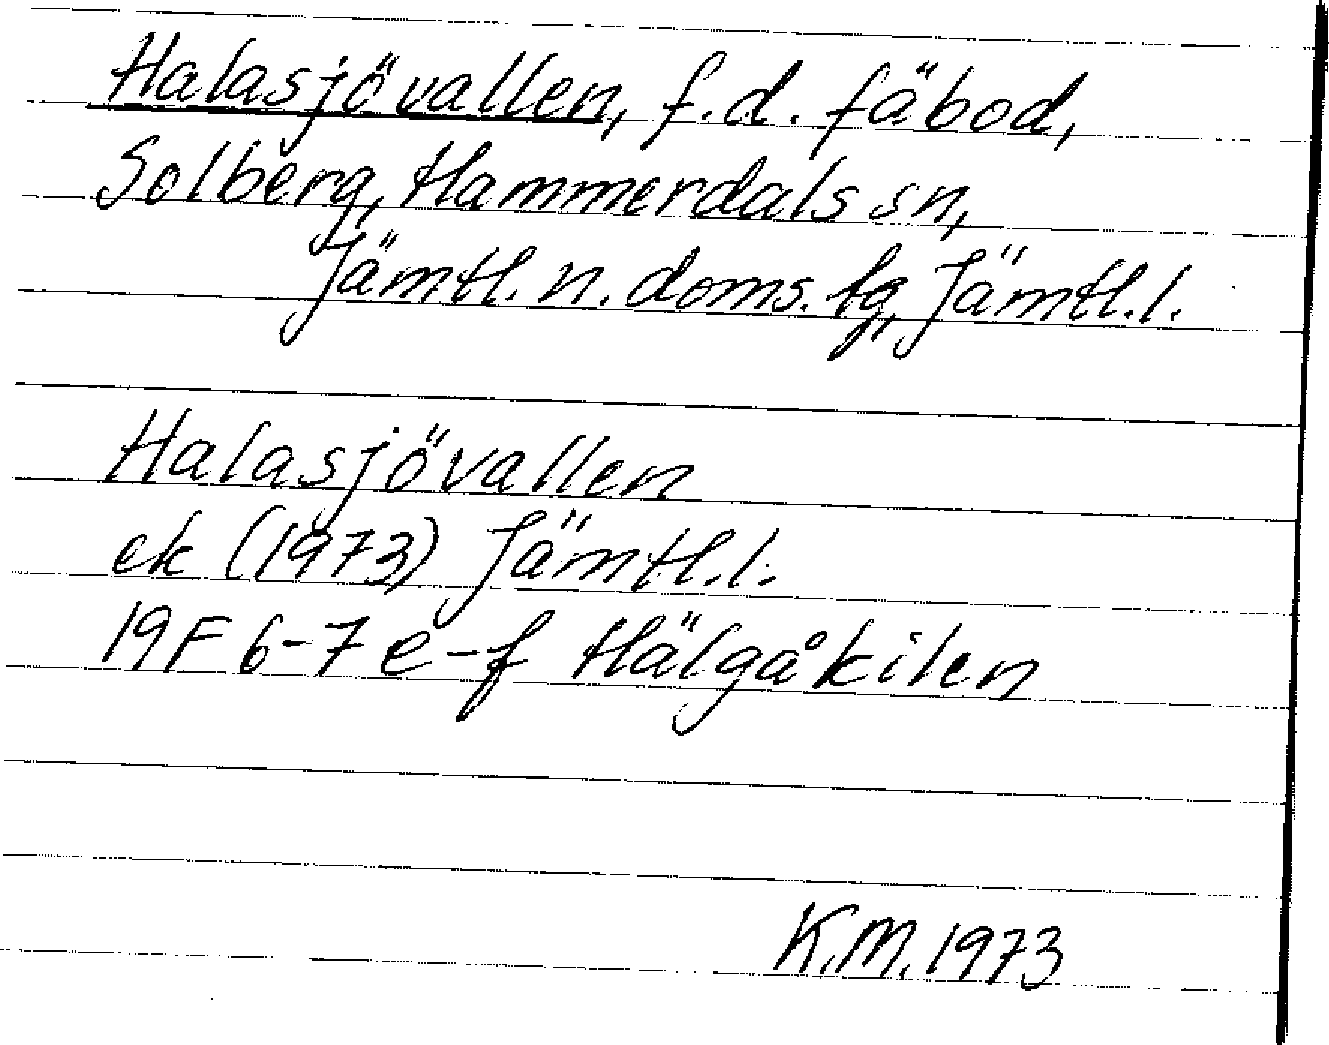 Halasjövallen, f.d. fäbod,
Solberg, Hammerdals sn,
Jämtl. n. doms. tg, Jämtl.l.
Halasjövallen
ek (1973) Jämtl.l.
19F 6-7 e-f Hälgåkilen
K.M. 1973